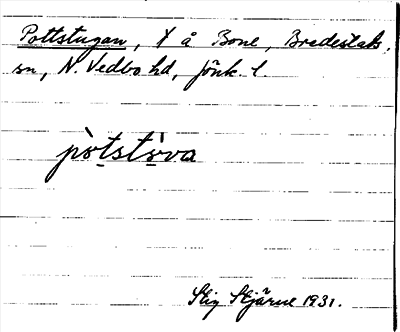 Pottstugan, X å Bone, Bredestads
sn, N. Vedbo hd, Jönk. l.
pòtstòva
Stig Stjärne 1931.